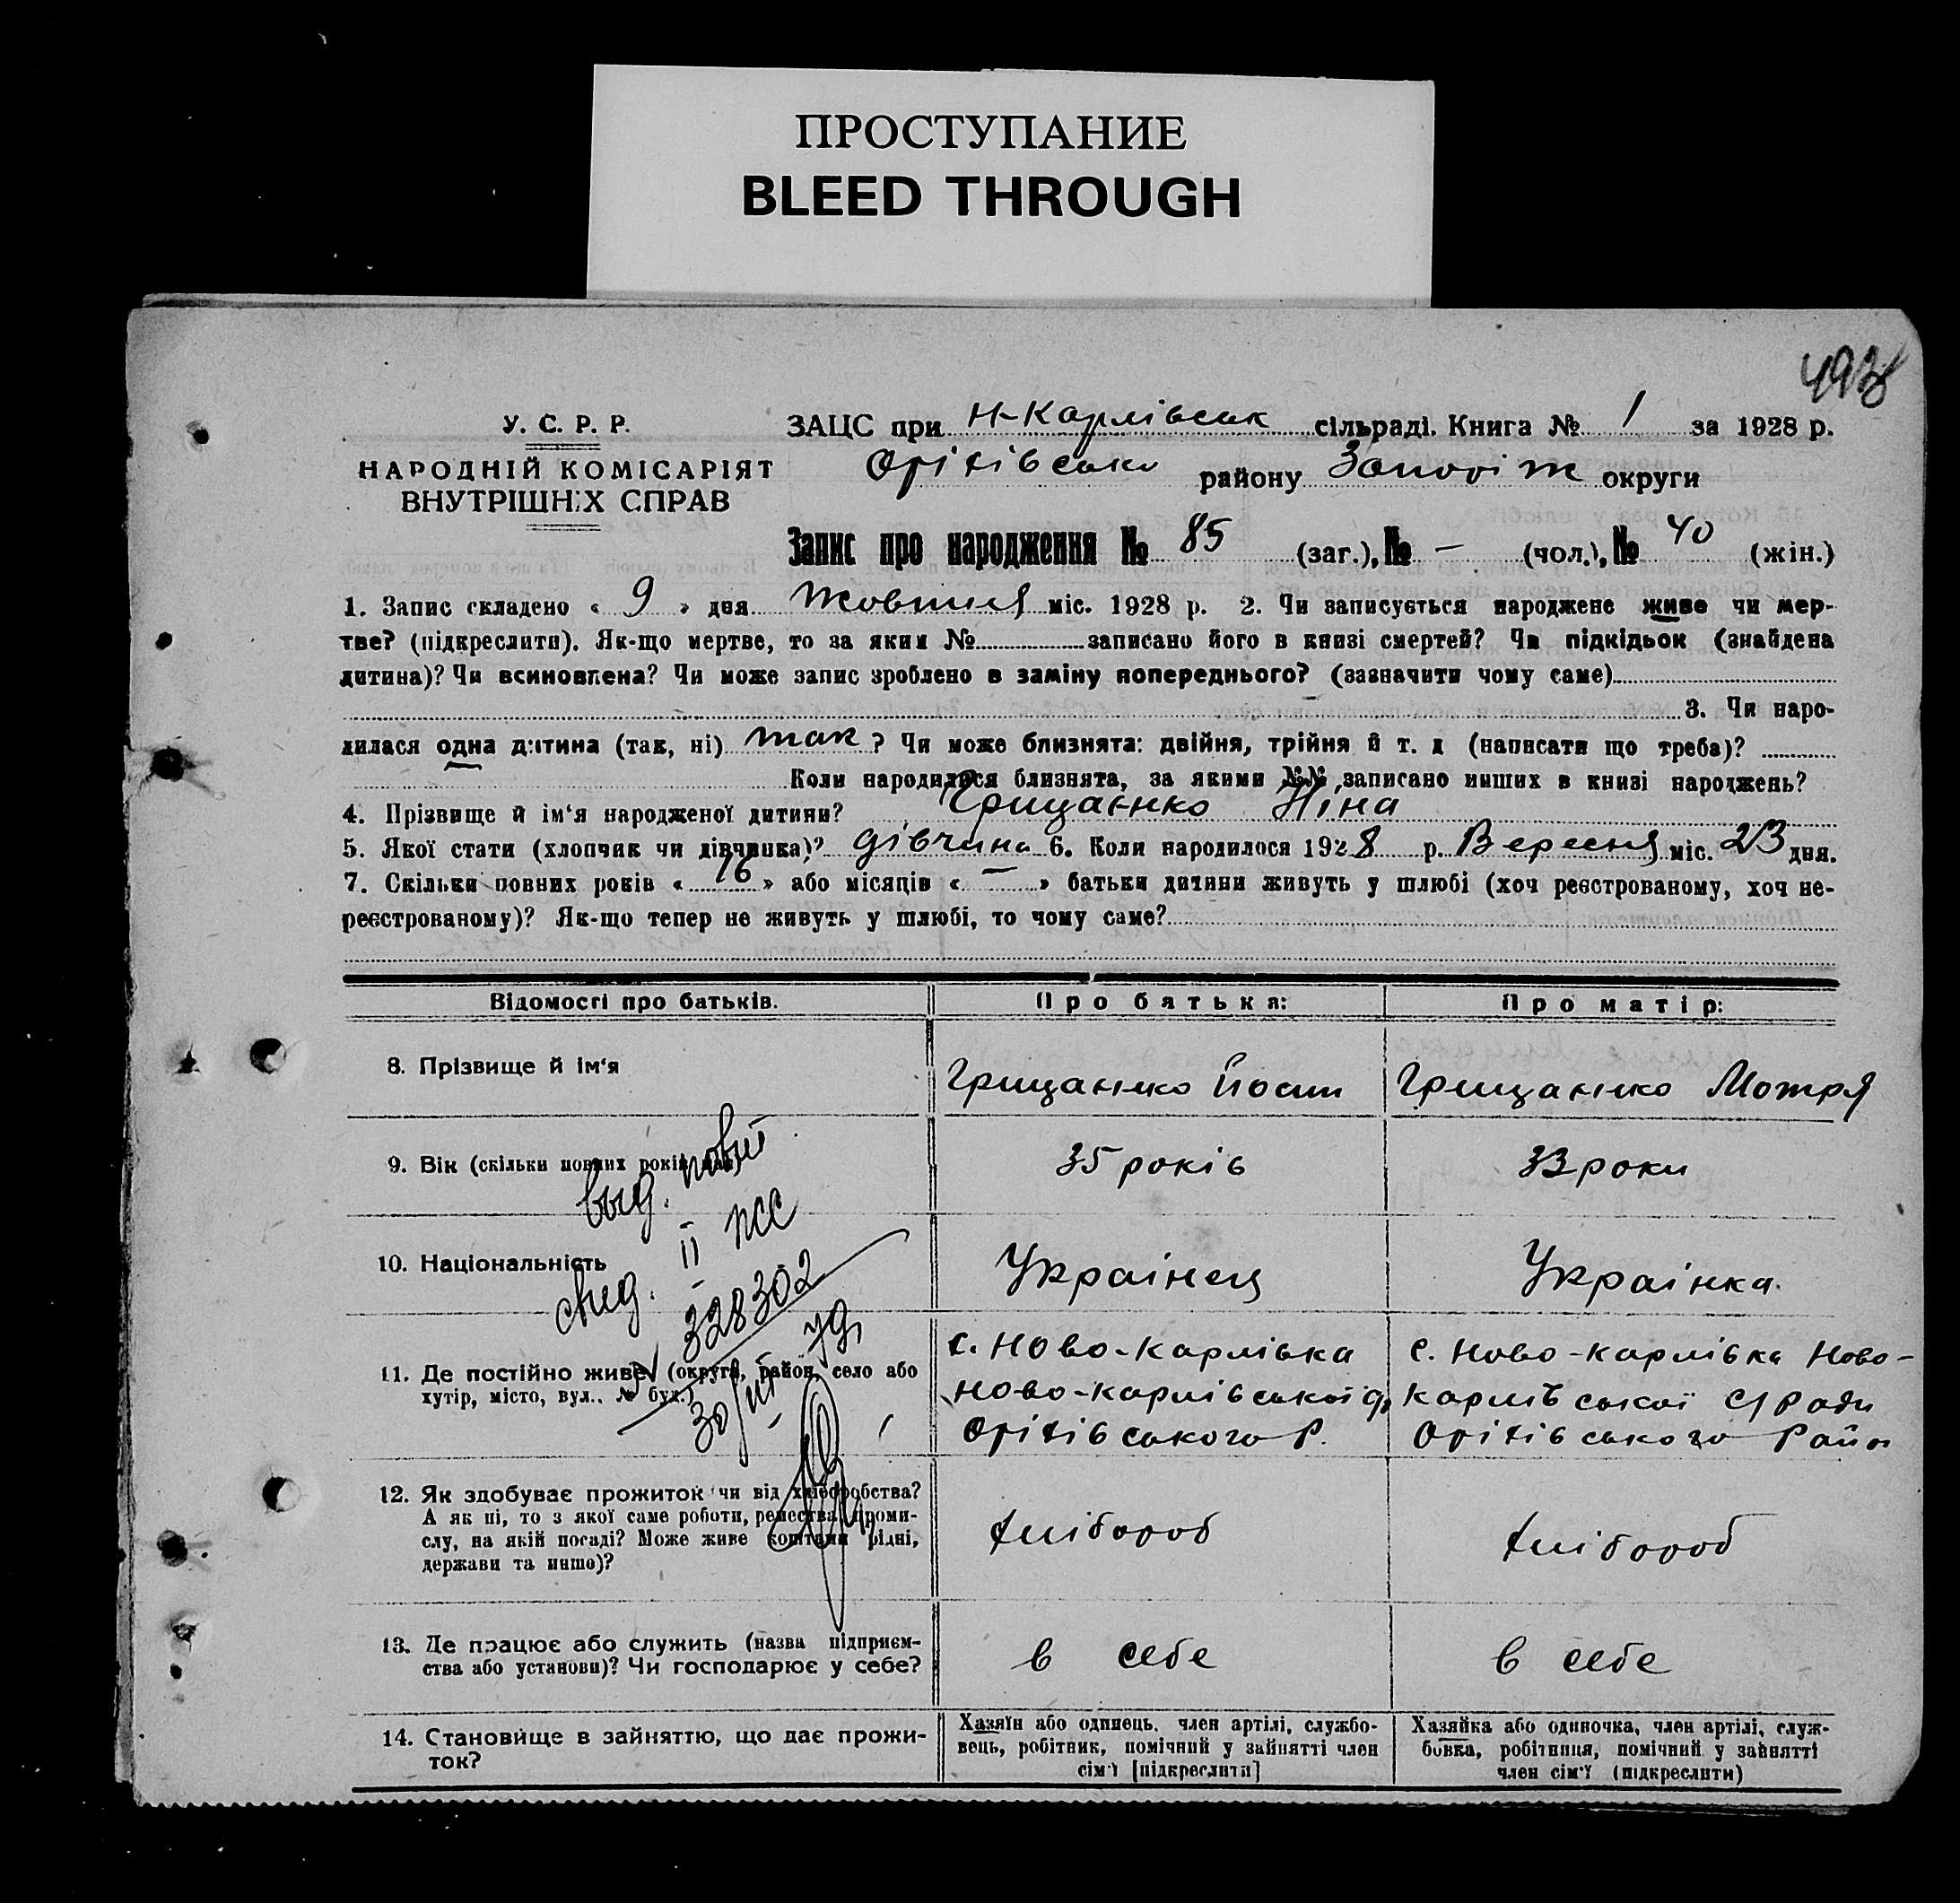 ПРОСТУПАНИЕ
BLEED THROUGH
493
У. С. Р. Р.
НАРОДНІЙ КОМІСАРІЯТ
ВНУТРІШНІХ СПРАВ
ЗАЦС при Н-Карлівськ сільраді. Книга № 1 за 1928 р.
Оріхівсько району Запоріж округи
Запис про народження № 85 (заг.), № — (чол.), № 40 (жін.)
1. Запис складено « 9 » дня Жовтня міс. 1928 р. 2. Чи записується народжене живе чи мер-
тве? (підкреслити). Як-що мертве, то за яким № записано його в книзі смертей? Чи підкідьок (знайдена
дитина)? Чи всиновлена? Чи може запис зроблено в заміну попереднього? (зазначити чому саме)
3. Чи наро-
дилася одна дитина (так, ні) так ? Чи може близнята: двійня, трійня й т. д (написати що треба)?
Коли народилися близнята, за якими №№ записано инших в книзі народжень?
4. Прізвище й ім'я народженої дитини? Грищаєнко Ніна
5. Якої стати (хлопчик чи дівчинка)? дівчина 6. Коли народилося 1928 р. Вересня міс. 23 дня.
7. Скільки повних років « 16 » або місяців « — » батьки дитини живуть у шлюбі (хоч реєстрованому, хоч не-
реєстрованому)? Як-що тепер не живуть у шлюбі, то чому саме?
Відомості про батьків. Про батька: Про матір:
8. Прізвище й ім'я Грищаєнко Йосип Грищаєнко Мотря
9. Вік (скільки повних років має) 35 років 33 роки
10. Національність Українец Українка.
11. Де постійно живе (округа, район, село або
хутір, місто, вул., № буд.)
с. Ново-Карлівка
Ново-Карлівської
Оріхівського Р.
с. Ново-Карлівка Ново-
Карлівської С/Ради
Оріхівського Район
12. Як здобуває прожиток чи від хліборобства?
А як ні, то з якої саме роботи, ремества, проми-
слу, на якій посаді? Може живе коштами рідні,
держави та иншо)?
хлібороб хлібороб
13. Де працює або служить (назва підприєм-
ства або установи)? Чи господарює у себе?
в себе в себе
14. Становище в зайняттю, що дає прожи-
ток?
Хазяїн або одинець, член артілі, службо-
вець, робітник, помічний у зайнятті член
сім'ї [підкреслити]
Хазяйка або одиночка, член артілі, служ-
бовка, робітниця, помічний у зайнятті
член сім'ї (підкреслити)
выд. повт
свид. II ЖС
№ 328302